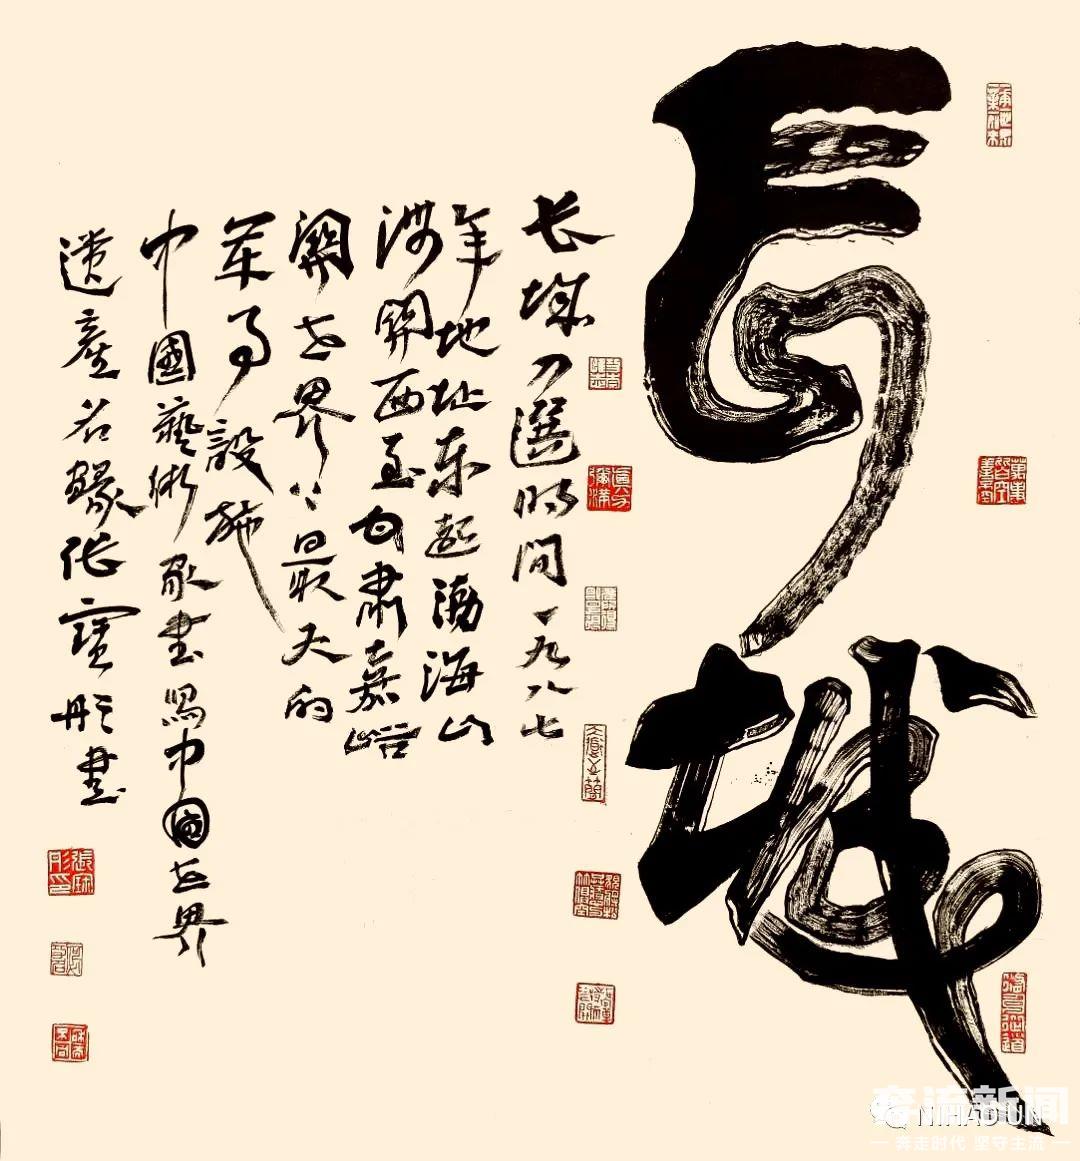 長城
长城入選时间一九八七
年地址东起渤海山
海関西至甘肅嘉峪
關世界上最大的
军事設施
中國藝術家書写中國世界
遗產名録张寶彤書
奔流新闻
NIHAO UN
奔走时代 坚守主流